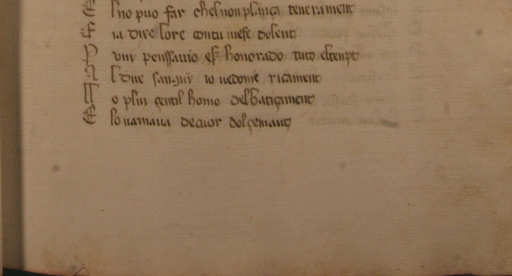 E l no puo far chel non plança tenerament
E ia dire lore contu mese dolent
P uni penssauio eſ honorado tuto eltenpt
A l due sangui io uedome ricament
Il o plui çentil homo del batiçiment
E lo namaua de cuor dolçemant